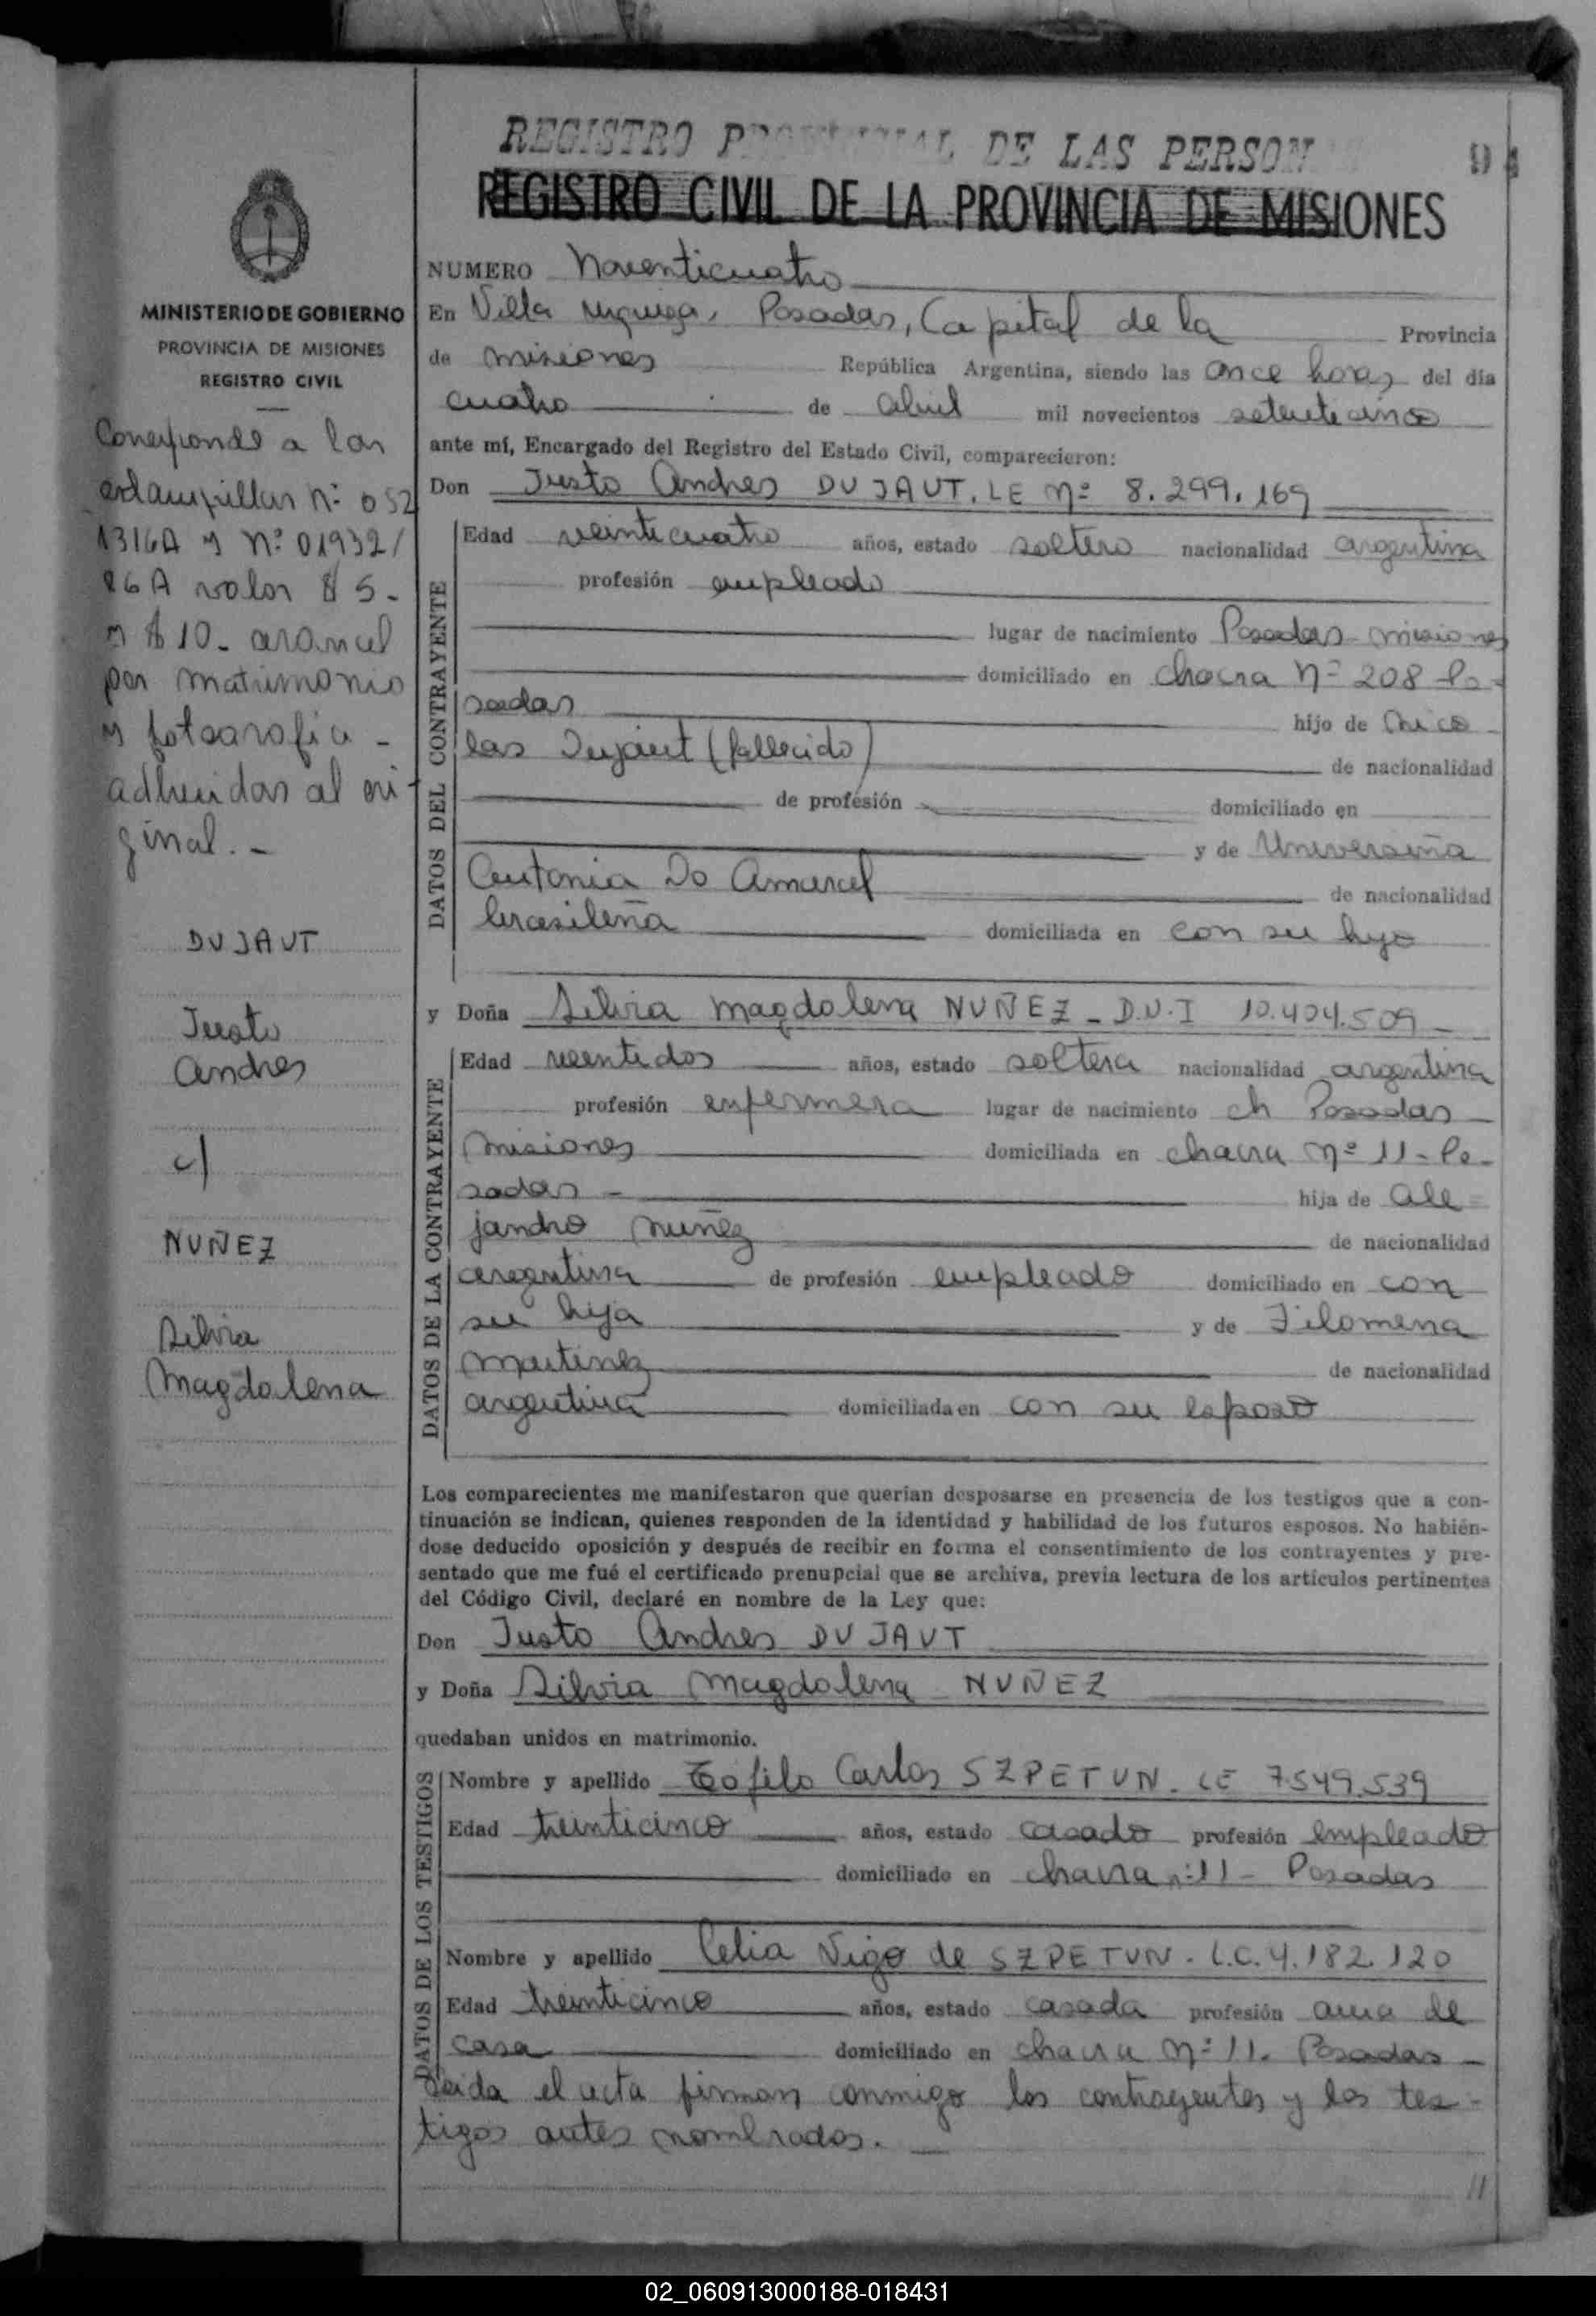 REGISTRO PROVINCIAL DE LAS PERSON
94
REGISTRO CIVIL DE LA PROVINCIA DE MISIONES
MINISTERIO DE GOBIERNO
PROVINCIA DE MISIONES
REGISTRO CIVIL
Corresponde a las
estampillas Nº 052
1316A y Nº 01932/
26A valor $ 5-
y $ 10- arancel
por matrimonio
y fotografia -
adheridas al ori-
ginal. -
DUJAUT
Justo
Andres
c/
NUÑEZ
Silvia
Magdalena
NUMERO Noventicuatro
En Villa Urquiza, Posadas, Capital de la Provincia
de Misiones República Argentina, siendo las once horas del día
cuatro de abril mil novecientos setenticinco
ante mí, Encargado del Registro del Estado Civil, comparecieron:
Don Justo Andres DUJAUT. LE Nº 8.299.169
DATOS DEL CONTRAYENTE
Edad veinticuatro años, estado soltero nacionalidad argentina
profesión empleado
lugar de nacimiento Posadas Misiones
domiciliado en chacra Nº 208 Po-
sadas hijo de Nico
las Dujaut (fallecido) de nacionalidad
de profesión domiciliado en
y de Universina
Antonia Do Amaral de nacionalidad
brasileña domiciliada en con su hijo
y Doña Silvia Magdalena NUÑEZ - D.N.I 10.404.509 -
DATOS DE LA CONTRAYENTE
Edad veintidos años, estado soltera nacionalidad argentina
profesión enfermera lugar de nacimiento ch Posadas
Misiones domiciliada en chacra Nº 11 - Po-
sadas - hija de Ale
jandro Nuñez de nacionalidad
argentina de profesión empleado domiciliado en con
su hija y de Filomena
Martinez de nacionalidad
argentina domiciliada en con su esposo
Los comparecientes me manifestaron que querían desposarse en presencia de los testigos que a con-
tinuación se indican, quienes responden de la identidad y habilidad de los futuros esposos. No habién-
dose deducido oposición y después de recibir en forma el consentimiento de los contrayentes y pre-
sentado que me fué el certificado prenupcial que se archiva, previa lectura de los artículos pertinentes
del Código Civil, declaré en nombre de la Ley que:
Don Justo Andres DUJAUT
y Doña Silvia Magdalena NUÑEZ
quedaban unidos en matrimonio.
DATOS DE LOS TESTIGOS
Nombre y apellido Teofilo Carlos SZPETUN. LE 7.549.539
Edad treinticinco años, estado casado profesión empleado
domiciliado en chacra nº 11 - Posadas
Nombre y apellido Celia Vigo de SZPETUN. L.C. 4.182.120
Edad treinticinco años, estado casada profesión ama de
casa domiciliado en chacra Nº 11. Posadas -
Leida el acta firman conmigo los contrayentes y los tes-
tigos antes nombrados. -
//
02_060913000188-018431